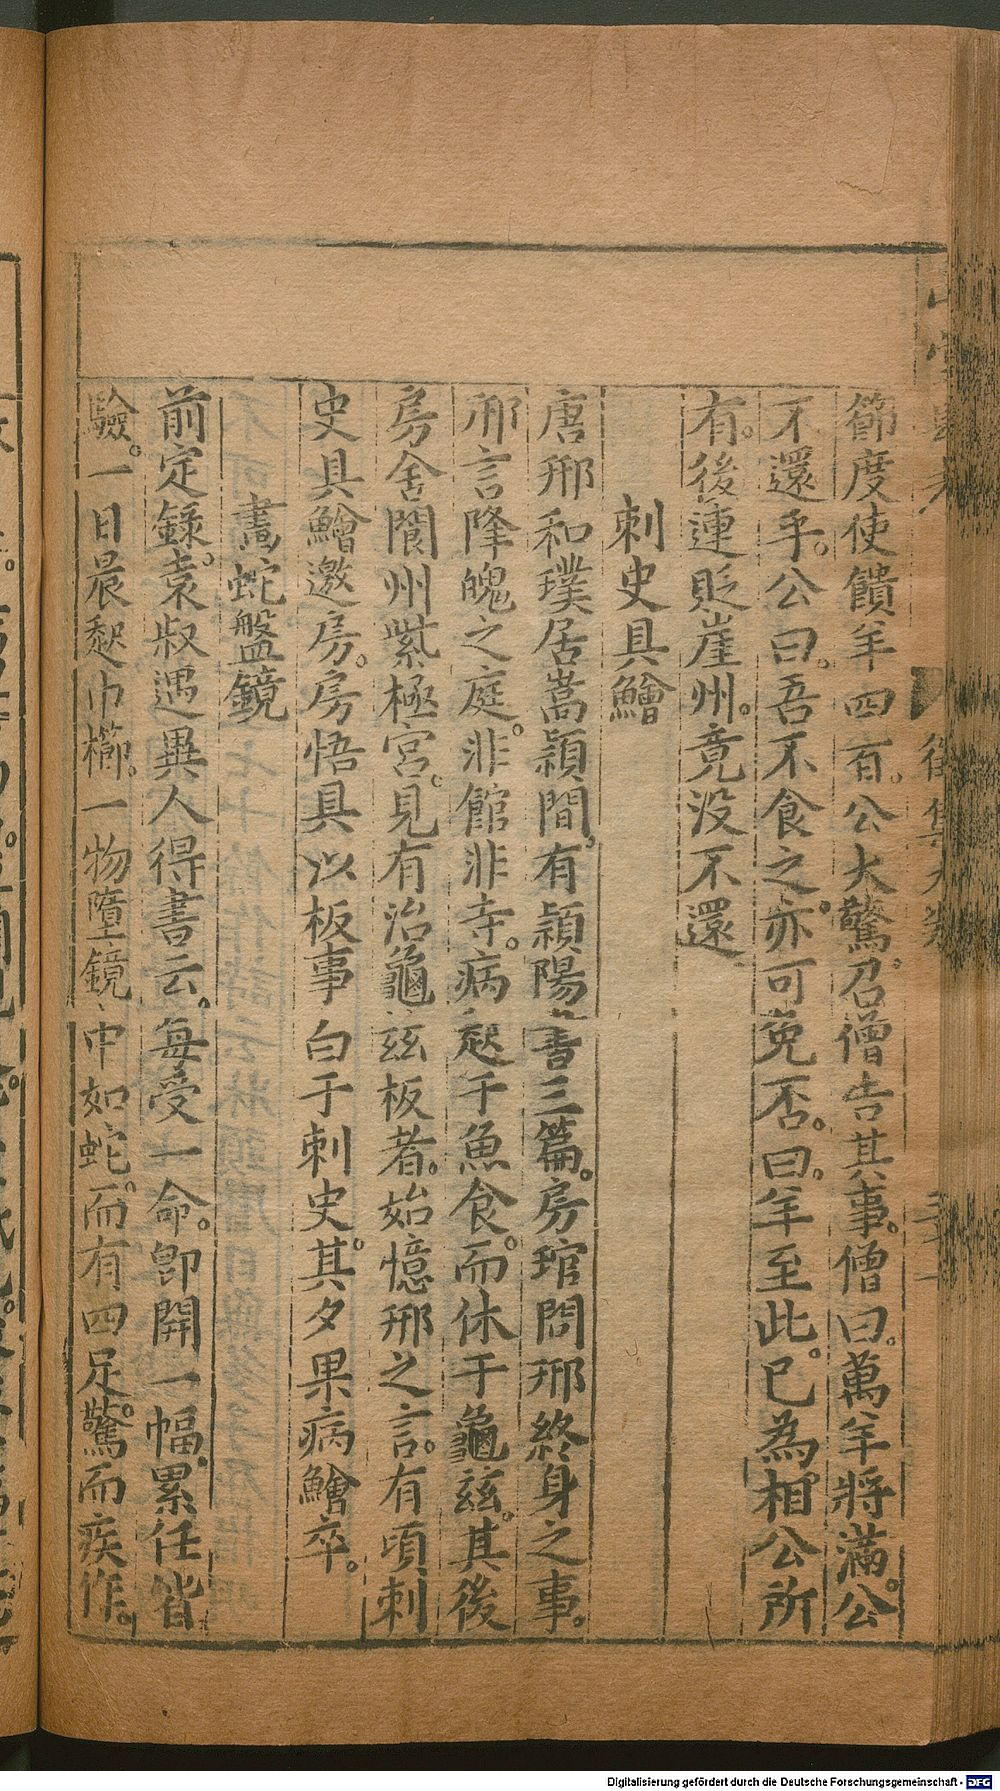 節度使饋羊四百。公大驚。召僧告其事。僧曰。萬羊將滿。公
不還乎。公曰。吾不食之。亦可免否。曰。羊至此。已為相公所
有。後連貶崖州。竟沒不還
刺史具鱠
唐邢和璞居嵩潁間。有潁陽書三篇。房琯問邢終身之事。
邢言降魄之庭。非館非寺。病起于魚食。而休于龜茲。其後
房舍閬州紫極宮。見有治龜茲板者。始憶邢之言。有頃刺
史具鱠邀房。房悟具以板事白于刺史。其夕果病鱠卒。
畫蛇盤鏡
前定錄。袁叔遇異人得書云。每受一命。卽開一幅。累任皆
驗。一日晨起巾櫛。一物墮鏡中如蛇。而有四足。驚而疾作。
Digitalisierung gefördert durch die Deutsche Forschungsgemeinschaft - DFG